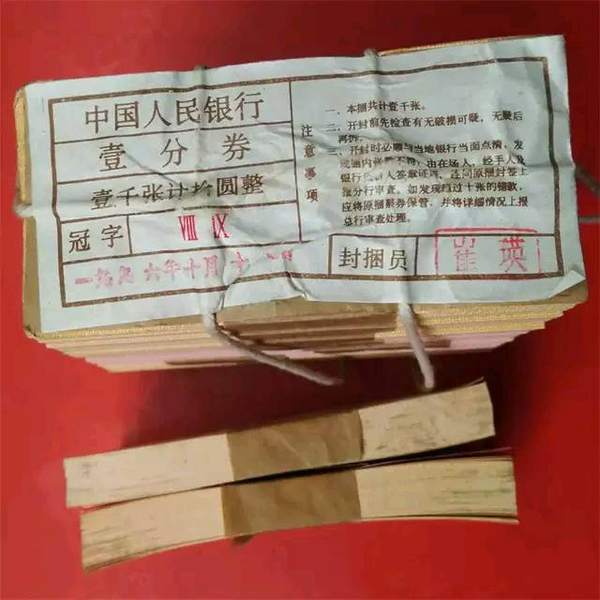 中国人民银行
壹分券
壹千张计拾圆整
冠字 Ⅷ Ⅸ
一九九六年十月十
注意事项
一、本捆共计壹千张。
二、开封前先检查有无破损可疑，无疑后
再拆。
三、开封时必顺与当地银行当面点清，发
由在场人，经手人及
签章证明，连同原捆封签上
报分行审查。如发现超过十张的错款，
应将原捆票券保管，并将详细情况上报
总行审查处理。
封捆员
崔英